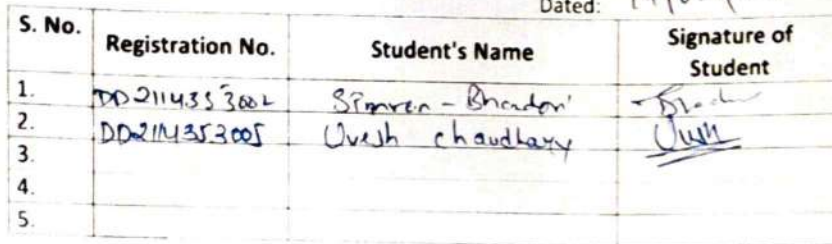 Dated:
S. No. Registration No. Student's Name Signature of Student
1. DD2114353002 Simren - Bhandari
2. DD2114353005 Uvesh chaudhary
3.
4.
5.